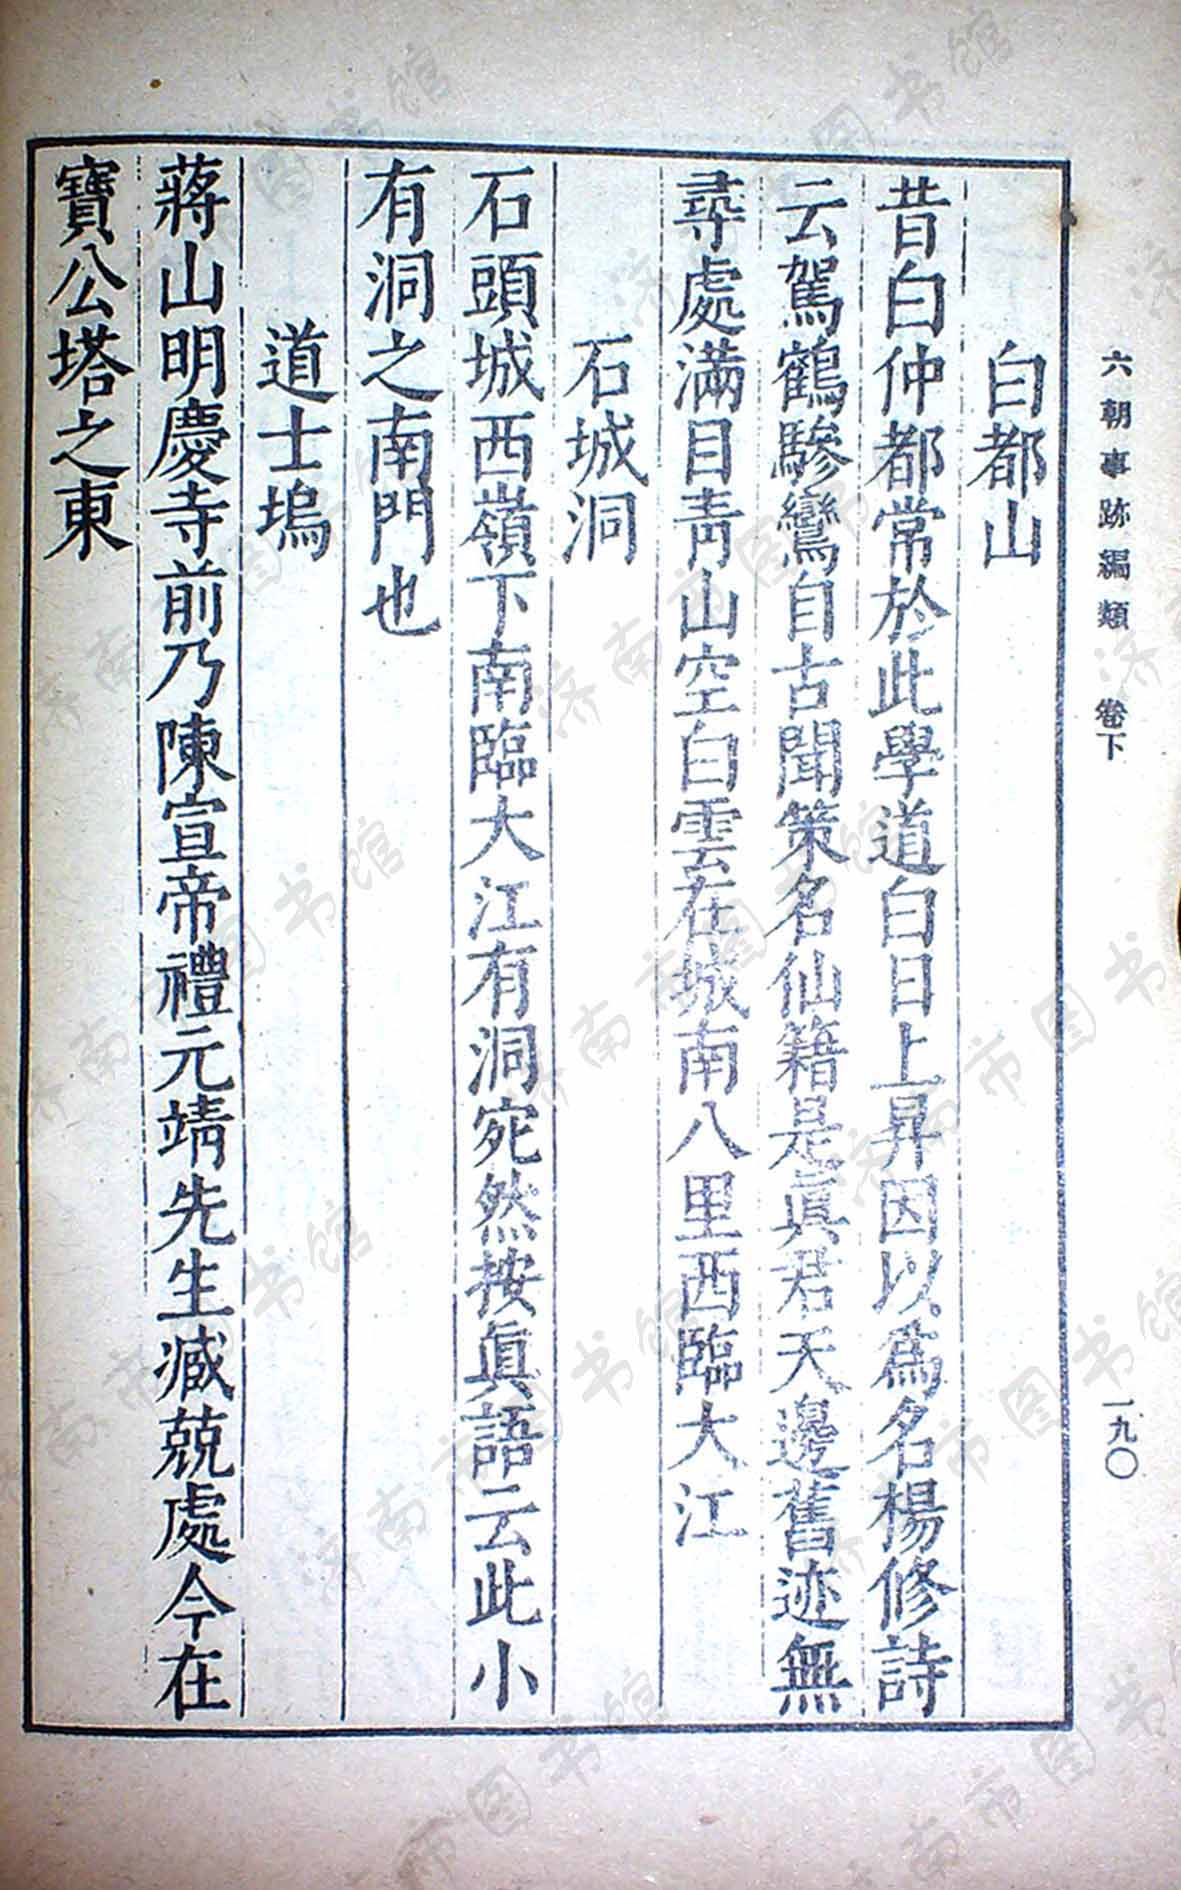 六朝事跡編類 卷下 一九〇
白都山
昔白仲都常於此學道白日上昇因以爲名楊修詩
云駕鶴驂鸞自古聞策名仙籍是眞君天邊舊迹無
尋處滿目靑山空白雲在城南八里西臨大江
石城洞
石頭城西嶺下南臨大江有洞宛然按眞語云此小
有洞之南門也
道士塢
蔣山明慶寺前乃陳宣帝禮元靖先生臧兢處今在
寶公塔之東
济南市图书馆